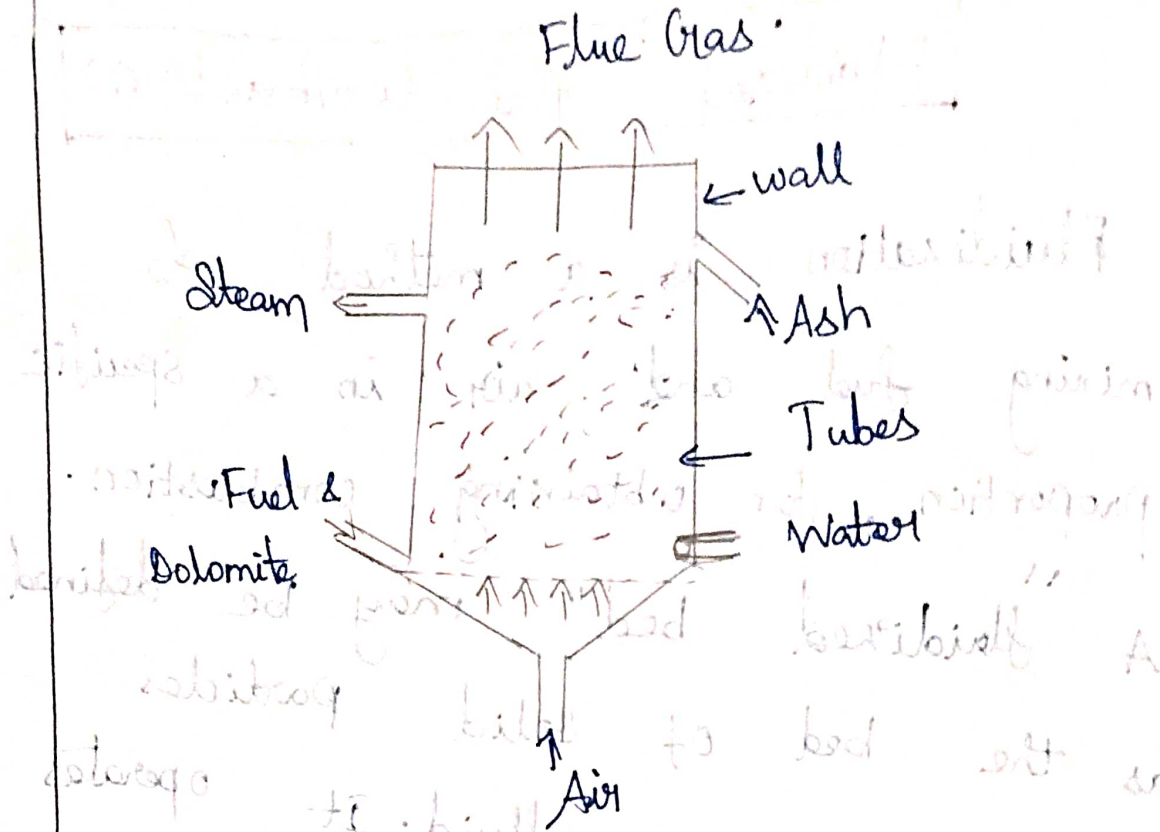 Flue Gas
← wall
Steam
Ash
Tubes
Fuel &
Dolomite
Water
Air